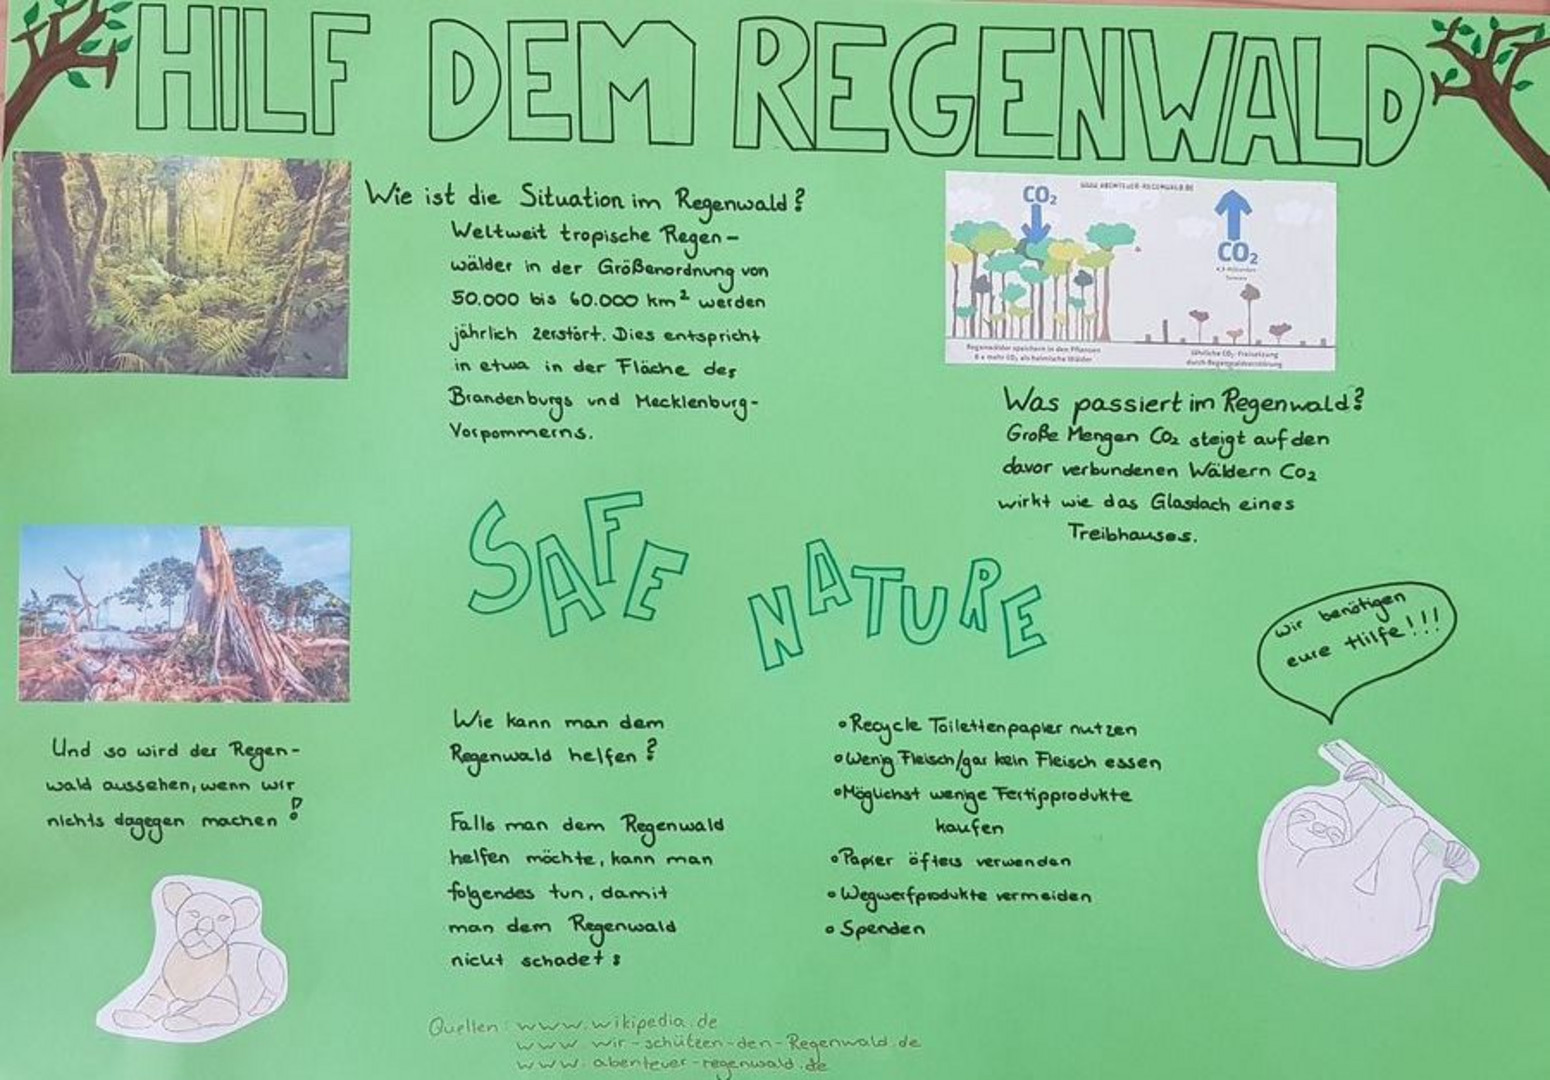 HILF DEM REGENWALD
Wie ist die Situation im Regenwald?
Weltweit tropische Regen-
wälder in der Größenordnung von
50.000 bis 60.000 km² werden
jährlich zerstört. Dies entspricht
in etwa in der Fläche des
Brandenburgs und Mecklenburg-
Vorpommerns.
WWW.ABENTEUER-REGENWALD.DE
CO₂
CO₂
4,3 Milliarden
Tonnen
Regenwälder speichern in den Pflanzen
6 x mehr CO₂ als heimische Wälder
Jährliche CO₂-Freisetzung
durch Regenwaldzerstörung
Was passiert im Regenwald?
Große Mengen CO₂ steigt auf den
davor verbundenen Wäldern CO₂
wirkt wie das Glasdach eines
Treibhauses.
SAFE NATURE
wir benötigen
eure Hilfe!!!
Und so wird der Regen-
wald aussehen, wenn wir
nichts dagegen machen!
Wie kann man dem
Regenwald helfen?
Falls man dem Regenwald
helfen möchte, kann man
folgendes tun, damit
man dem Regenwald
nicht schadet:
• Recycle Toilettenpapier nutzen
• Wenig Fleisch/gar kein Fleisch essen
• Möglichst wenige Fertipprodukte
kaufen
• Papier öfters verwenden
• Wegwerfprodukte vermeiden
• Spenden
Quellen: www.wikipedia.de
www.wir-schützen-den-Regenwald.de
www.abenteuer-regenwald.de